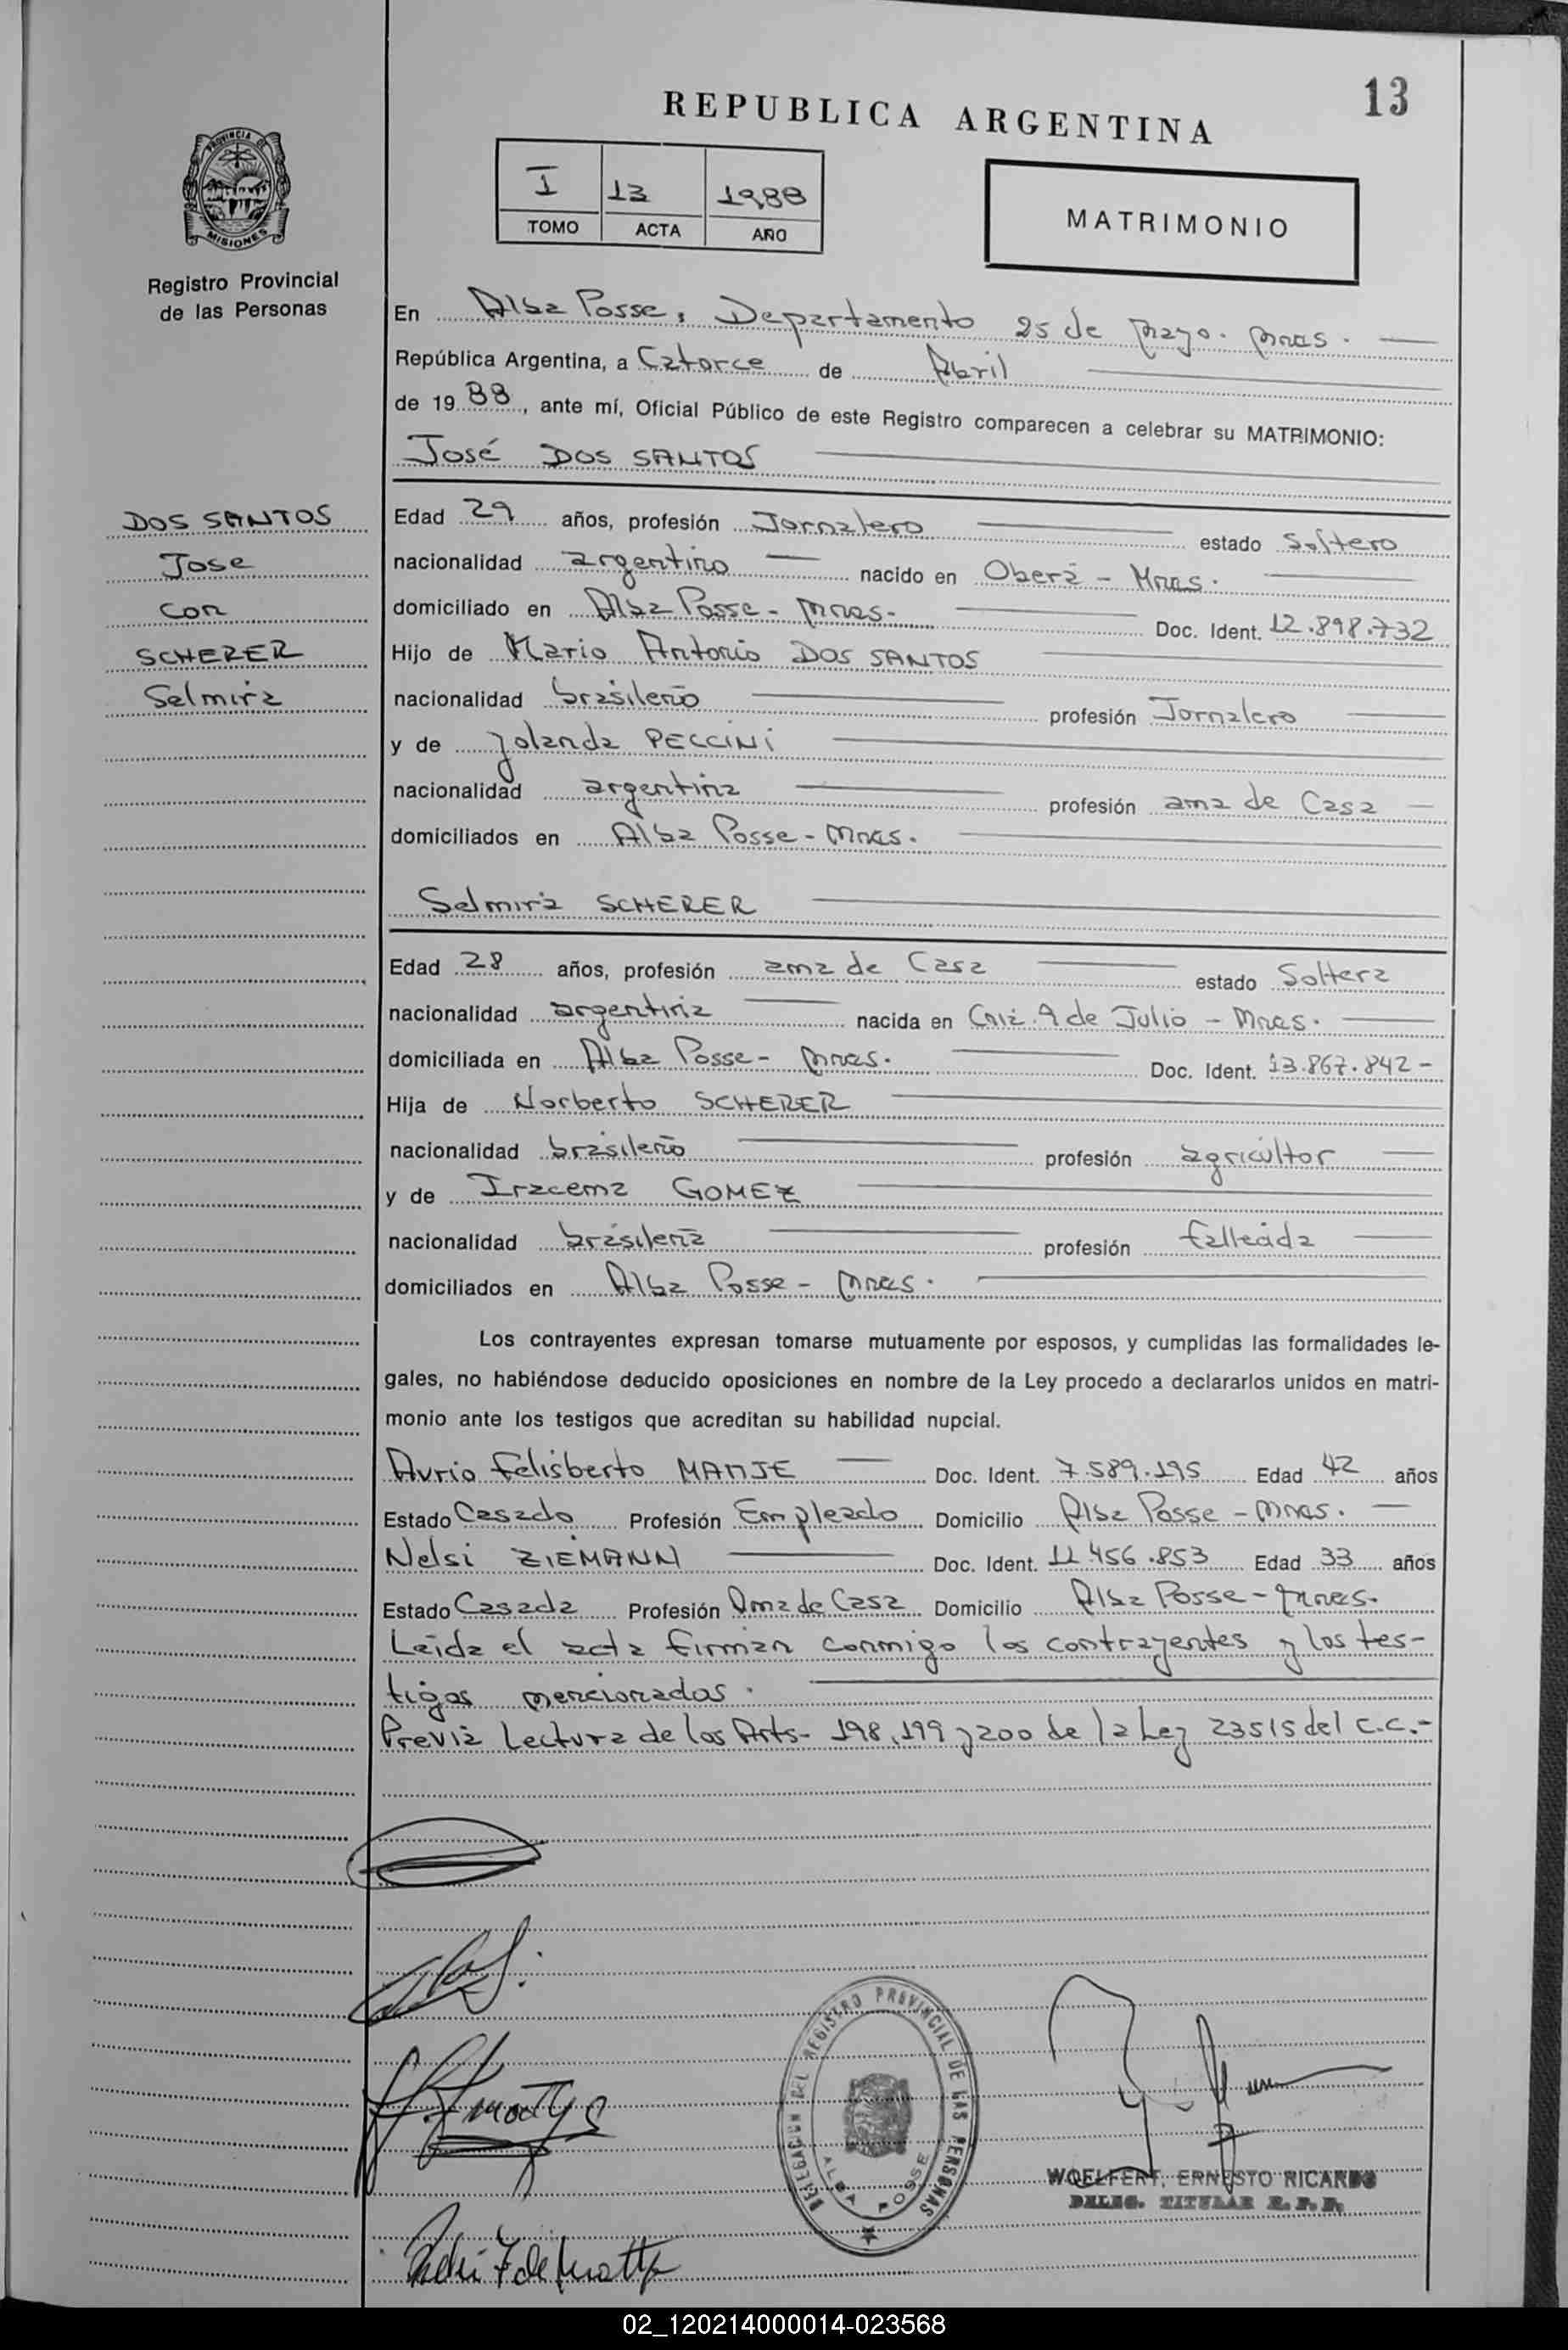 13
REPUBLICA ARGENTINA
I 13 1988
TOMO ACTA AÑO
MATRIMONIO
PROVINCIA DE
MISIONES
Registro Provincial
de las Personas
En Alba Posse, Departamento 25 de Mayo. Mnes.
República Argentina, a Catorce de Abril
de 19 88, ante mí, Oficial Público de este Registro comparecen a celebrar su MATRIMONIO:
José DOS SANTOS
DOS SANTOS
Jose
con
SCHERER
Selmira
Edad 29 años, profesión Jornalero estado Soltero
nacionalidad argentino nacido en Oberá - Mnes.
domiciliado en Alba Posse - Mnes. Doc. Ident. 12.898.732
Hijo de Mario Antonio DOS SANTOS
nacionalidad brasileño profesión Jornalero
y de Yolanda PECCINI
nacionalidad argentina profesión ama de Casa
domiciliados en Alba Posse - Mnes.
Selmira SCHERER
Edad 28 años, profesión ama de Casa estado Soltera
nacionalidad argentina nacida en Cnia. 9 de Julio - Mnes.
domiciliada en Alba Posse - Mnes. Doc. Ident. 13.867.842 -
Hija de Norberto SCHERER
nacionalidad brasileño profesión agricultor
y de Iracema GOMEZ
nacionalidad brasileña profesión fallecida
domiciliados en Alba Posse - Mnes.
Los contrayentes expresan tomarse mutuamente por esposos, y cumplidas las formalidades le-
gales, no habiéndose deducido oposiciones en nombre de la Ley procedo a declararlos unidos en matri-
monio ante los testigos que acreditan su habilidad nupcial.
Aurio Felisberto Doc. Ident. 7.589.195 Edad 42 años
Estado Casado Profesión Empleado Domicilio Alba Posse - Mnes.
Nelsi ZIEMANN Doc. Ident. 11.456.853 Edad 33 años
Estado Casada Profesión Ama de Casa Domicilio Alba Posse - Mnes.
Leida el acta firman conmigo los contrayentes y los tes-
tigos mencionados.
Previa Lectura de los Arts- 198, 199 y 200 de la Ley 23515 del C.C.-
DELEGACION DEL REGISTRO PROVINCIAL DE LAS PERSONAS
ALBA POSSE
WOELFERT, ERNESTO RICARDO
DELEG. TITULAR R. P. P.
02_120214000014-023568